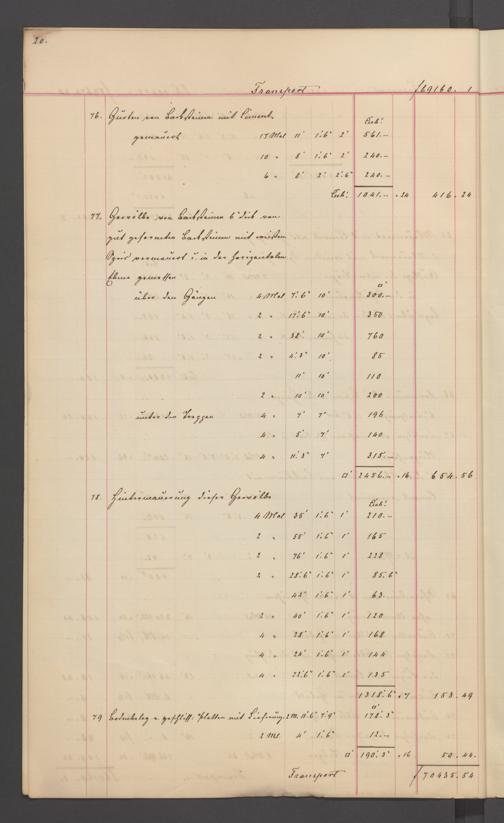 20.
Transport f 69160. 1
76. Gurten von Backsteine mit Cement- Cub.'
gemauert 17 Mal 11' 1.'6" 2' 561.–
10 " 8' 1.'6" 2' 240.–
6 " 8' 2' 2.'6" 240.–
Cub.' 1041.– . 24 416. 24
77. Gewölbe von Backsteine 6" dick von
gut geformten Backsteinen mit
vermauert u. in der horizontalen
Ebene gemessen □'
über den Gängen 4 Mal 7.'6" 10' 300.–
2 " 17.'6" 10' 350
2 " 38' 10' 760
2 " 4.'3" 10' 85
11' 10' 110
2 " 10' 10' 200
unter den Treppen 4 " 7' 7' 196
4 " 5' 7' 140
4 " 11.'3" 7' 315.–
□' 2456.– . 16. 654. 56
78. Hintermauerung dieser Gewölbe Cub.'
4 Mal 35' 1.'6" 1' 210.–
2 " 55' 1.'6" 1' 165
2 " 76' 1.'6" 1' 228
2 " 28.'6" 1.'6" 1' 85.6"
42' 1.'6" 1' 63.
2 " 40' 1.'6" 1' 120
4 " 28' 1.'6" 1' 168
4 " 24' 1.'6" 1' 144
4 " 22.'6" 1.'6" 1' 135
1318.'6" . 7 153. 49
79 Bodenbelag v. geschliff. Platten mit Lieferung. 2 M. 11.'6" 7.'9" 178.'3"
2 Ml. 4' 1.'6" 12.–
□' 190.'3" . 16 50. 44.
Transport f 70435. 54